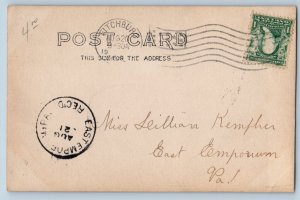 4.00
FITCHBURG
POST CARD
THIS SIDE FOR THE ADDRESS
EAST EMPORIUM
REC'D
AUG
21
Miss Lillian Kempher
East Emporium
Pa.